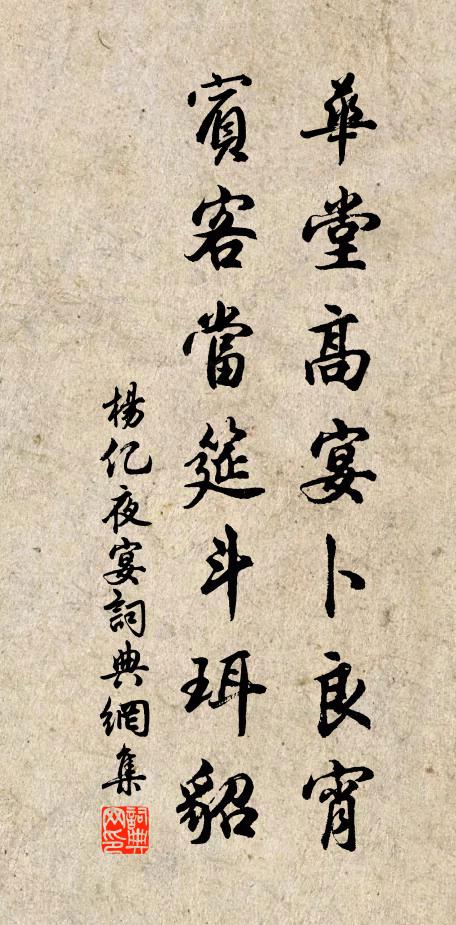 華堂高宴卜良宵
賓客當筵斗珥貂
楊億夜宴詞典網集
詞典网印